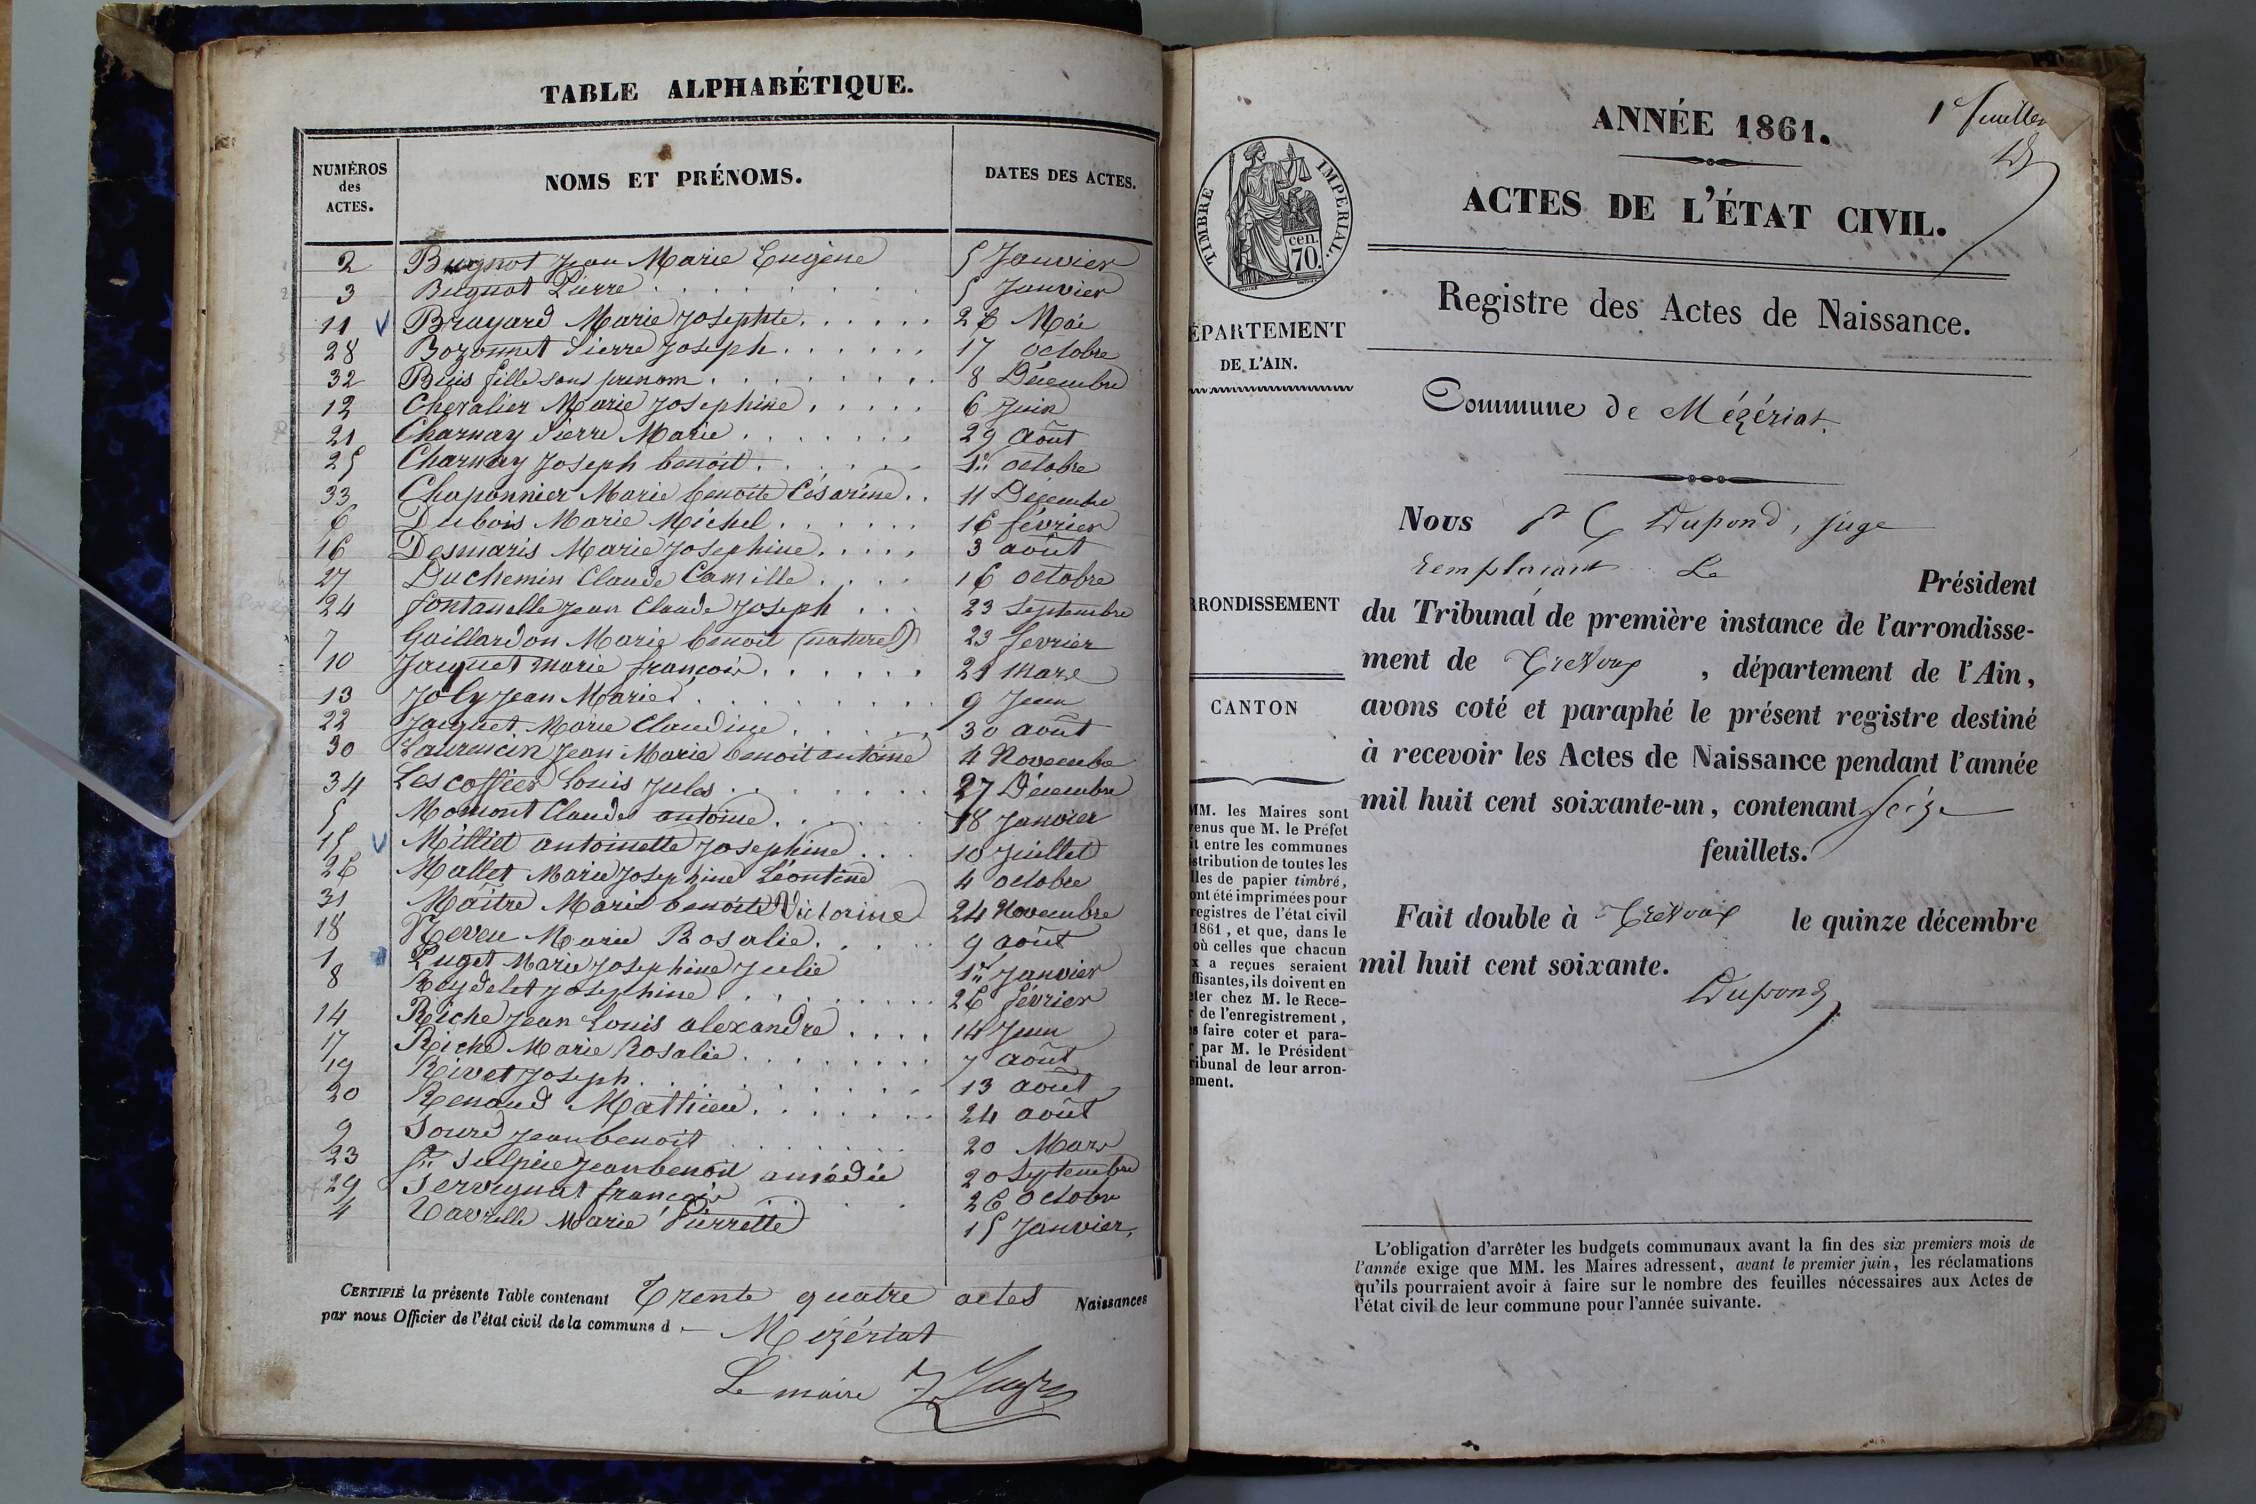 TABLE ALPHABÉTIQUE.
NUMÉROS des ACTES. NOMS ET PRÉNOMS. DATES DES ACTES.
2 Bugnot Jean Marie Eugène 5 Janvier
3 Bugnot Pierre 5 Janvier
11 Brayard Marie Josephte 26 Mai
28 Bozonnet Pierre Joseph 17 octobre
32 Buis fille sans prenom 8 Décembre
12 Chevalier Marie Josephine 6 Juin
21 Charnay Pierre Marie 29 Août
25 Charnay Joseph benoit 1er octobre
33 Chaponnier Marie benoite Césarine 11 Décembre
6 Dubois Marie Michel 16 février
16 Desmaris Marie Josephine 3 août
27 Duchemin Claude Camille 16 octobre
24 fontanelle Jean Claude Joseph 23 Septembre
7 Gaillardon Marie benoit (naturel) 23 fevrier
10 Jaquet marie françois 21 mars
13 Joly Jean Marie 9 Juin
22 Jaquet Marie Claudine 30 août
30 Laurencin Jean Marie benoit antoine 4 Novembre
34 Lescoffier Louis Jules 27 Décembre
5 Momont Claude antoine 18 Janvier
15 Milliet antoinette Josephine 10 Juillet
26 Mallet Marie Josephine Léontine 4 octobre
31 Maître Marie benoite Victorine 24 Novembre
18 Neveu Marie Rosalie 9 août
1 Puget Marie Josephine Julie 1er Janvier
8 Reydelet Josephine 26 février
14 Riche Jean Louis alexandre 14 Juin
17 Riche Marie Rosalie 7 août
19 Rivet Joseph 13 août
20 Renaud Mathieu 24 août
9 Sourd Jean benoit 20 Mars
23 St Sulpice Jean benoit amédée 20 Septembre
29 Servignat françois 26 octobre
4 Marie Pierrette 15 Janvier
CERTIFIÉ la présente Table contenant Trente quatre actes Naissances
par nous Officier de l'état civil de la commune d Mézériat
Le maire
1er feuillet
ANNÉE 1861.
ACTES DE L'ÉTAT CIVIL.
TIMBRE IMPERIAL.
cen. 70.
Registre des Actes de Naissance.
ÉPARTEMENT
DE L'AIN.
Commune de Mézériat.
Nous Dupond, juge
remplaçant Le Président
RRONDISSEMENT
du Tribunal de première instance de l'arrondisse-
ment de Trevoux, département de l'Ain,
CANTON
avons coté et paraphé le présent registre destiné
à recevoir les Actes de Naissance pendant l'année
mil huit cent soixante-un, contenant seize
feuillets.
Fait double à Trévoux le quinze décembre
mil huit cent soixante.
Dupond
MM. les Maires sont
enus que M. le Préfet
it entre les communes
stribution de toutes les
lles de papier timbré,
ont été imprimées pour
registres de l'état civil
1861, et que, dans le
où celles que chacun
x a reçues seraient
ffisantes, ils doivent en
ter chez M. le Rece-
de l'enregistrement,
s faire coter et para-
par M. le Président
ribunal de leur arron-
ement.
L'obligation d'arrêter les budgets communaux avant la fin des six premiers mois de
l'année exige que MM. les Maires adressent, avant le premier juin, les réclamations
qu'ils pourraient avoir à faire sur le nombre des feuilles nécessaires aux Actes de
l'état civil de leur commune pour l'année suivante.